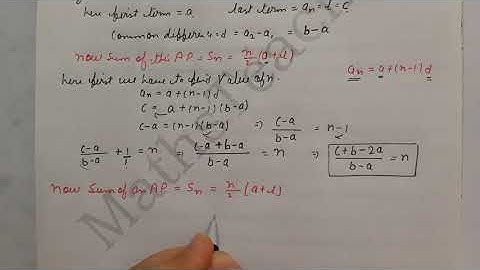 here first term = a, last term = aₙ = l = c
Common difference: d = a₂ - a₁ = b - a
Now Sum of this AP = Sₙ = n/2 (a+l)
here first we have to find Value of n.
aₙ = a + (n-1) d
aₙ = a + (n-1) d
c = a + (n-1) (b-a)
c-a = (n-1) (b-a) ⇒ (c-a)/(b-a) = n-1
(c-a)/(b-a) + 1/1 = n ⇒ (c-a+b-a)/(b-a) = n ⇒ (c+b-2a)/(b-a) = n
Now Sum of an AP = Sₙ = n/2 [a+l]